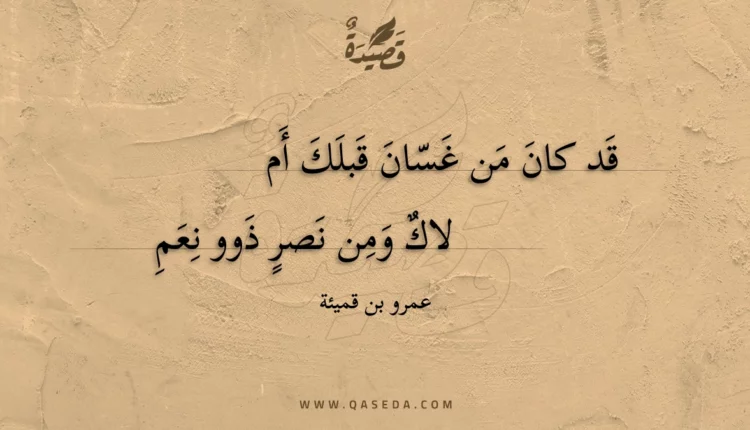 قَصِيْدَةٌ
قَد كانَ مَن غَسّانَ قَبلَكَ أَم
لاكٌ وَمِن نَصرٍ ذَوو نِعَمِ
عمرو بن قميئة
WWW.QASEDA.COM